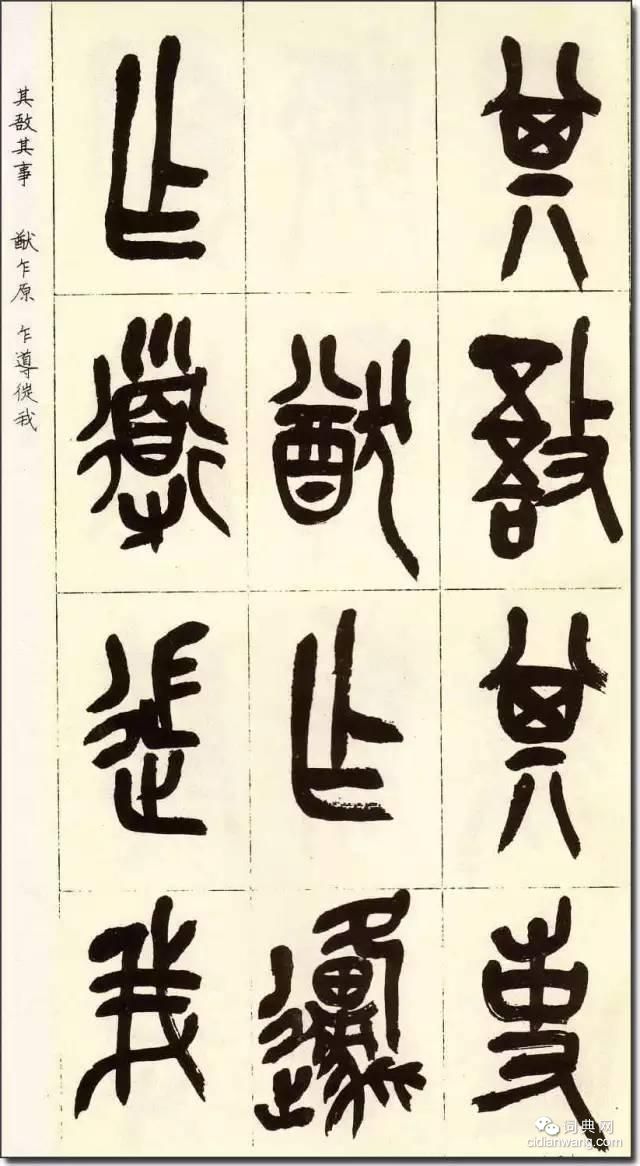 其敔其事
猷乍原
乍導我
其敔其事 猷乍原 乍導我
词典网
cidianwang.com